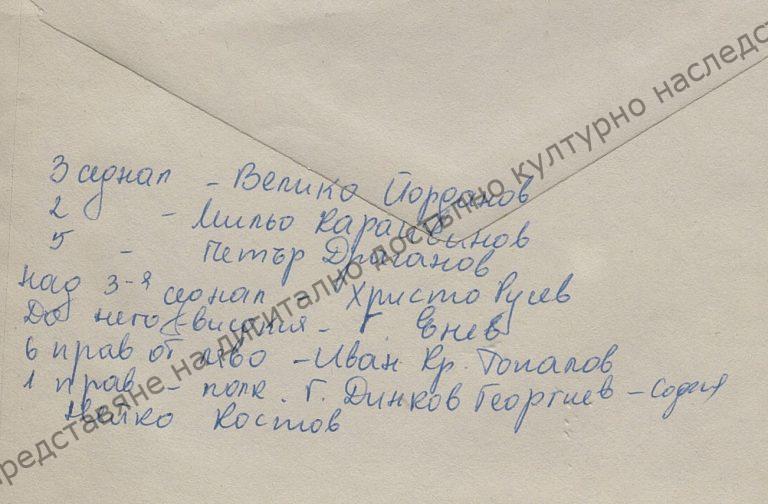 3 седнал - Велико Йорданов
2 - Мильо
5 - Петър Драганов
над 3-я седнал - Христо Русев
До него - високия - Г. Енев
6 прав от ляво - Иван Кр. Топалов
1 прав - полк. Г. Динков Георгиев - София
Костов
представяне на дигитално достъпно културно наследст